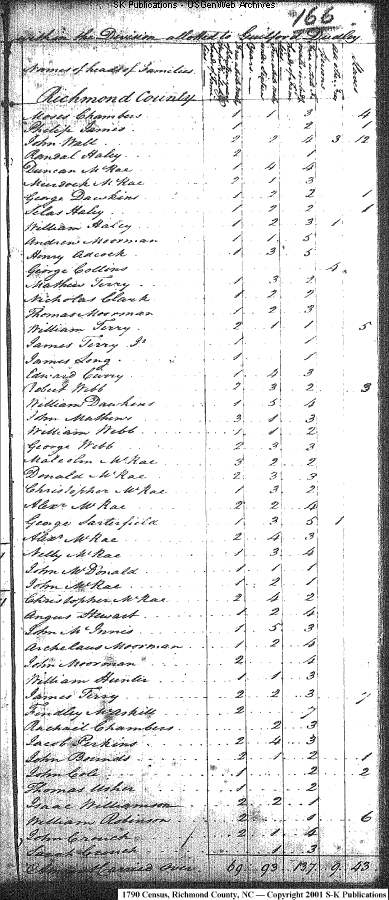 SK Publications - USGenWeb Archives
166
within the Division allotted to Guilford Dudley
Names of heads of Families
Slaves
Richmond County
Moses Chambers 1 1 3 4
Philip James 1 2 1
John Wall 2 2 4 3 12
Randal Haley 2 1
Duncan McRae 1 4 4
Murdock McRae 2 1 3
George Dawkins 1 2 2 1
Silas Haley 1 2 2 1
William Haley 1 2 3 1
Andrew Moorman 1 1 5
Henry Adcock 1 3 5
George Collins 4
Mathew Terry 1 3 2
Nicholas Clark 1 2 2
Thomas Moorman 1 2 3
William Terry 2 1 1 5
James Terry Jr 1 1
James Long 1 1
Edward Curry 1 4 3
Robert Webb 2 3 2 3
William Dawkins 1 5 4
John Mathews 3 1 3
William Webb 1 1 2
George Webb 2 3 3
Malcolm McRae 3 2 2
Donald McRae 2 3 3
Christopher McRae 1 3 2
Alexr McRae 2 2 4
George Sarterfield 1 3 5 1
Alexr McRae 2 4 3
Nelly McRae 1 3 4
John McDonald 1 1 1
John McRae 1 2 1
Christopher McRae 2 4 2
Angus Stewart 1 2 4
John McInnis 1 5 3
Archelaus Moorman 1 2 4
John Moorman 2 4
William Hunter 1 1 3
James Terry 2 2 3 7
Findley McAskill 2 7
Rachael Chambers 2 3
Jacob Perkins 2 4 3
John Bounds 2 1 2 1
John Cole 1 2 2
Thomas Usher 1 2
Isaac Williamson 2 2 1
William Robinson 2 1 6
John Crouch 2 1 4
Crouch 1 3
Carried Over 69 93 137 9 43
1790 Census, Richmond County, NC — Copyright 2001 S-K Publications